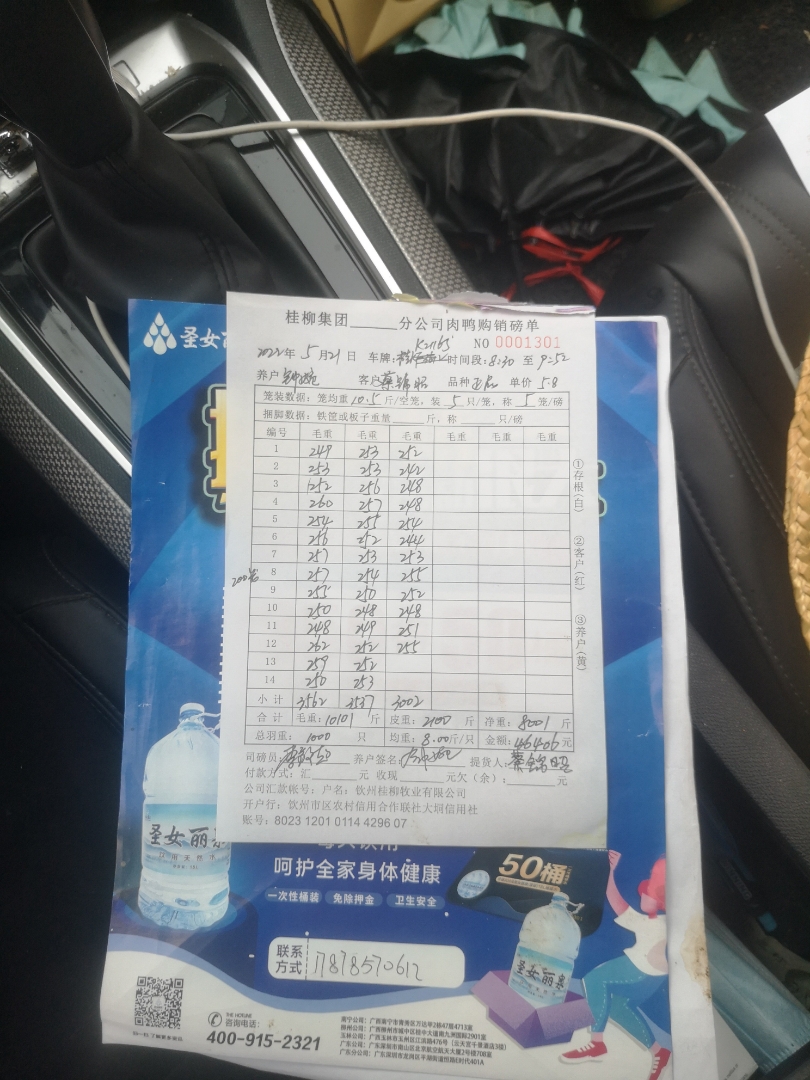 圣女丽
桂柳集团______分公司肉鸭购销磅单
NO 0001301
2022年 5月21日 车牌: 时间段:8:30 至 9:52
养户 客户 品种 单价 5.8
笼装数据: 笼均重 10.5 斤/空笼, 装 5 只/笼, 称 5 笼/磅
捆脚数据: 铁筐或板子重量____斤, 称____只/磅
编号 毛重 毛重 毛重 毛重 毛重 毛重
1 249 253 252
2 253 253 242
3 252 256 248
4 260 257 248
5 254 255 254
6 256 252 244
7 257 253 253
8 257 254 255
9 255 250 252
10 250 248 248
11 248 249 251
12 262 252 255
13 259 252
14 250 253
小计 3562 3537 3002
合计 毛重:10101 斤 皮重:2100 斤 净重:8001 斤
总羽重: 1000 只 均重: 8.00斤/只 金额:46406元
司磅员: 养户签名: 提货人:
付款方式: 汇______元 收现______元欠(余):______元
公司汇款帐号: 户名: 钦州桂柳牧业有限公司
开户行: 钦州市区农村信用合作联社大垌信用社
账号: 8023 1201 0114 4296 07
①存根(白)
②客户(红)
③养户(黄)
圣女丽泉
呵护全家身体健康
一次性桶装 免除押金 卫生安全
50桶
圣女丽泉
联系方式 17878570612
THE HOTLINE
咨询电话:
400-915-2321